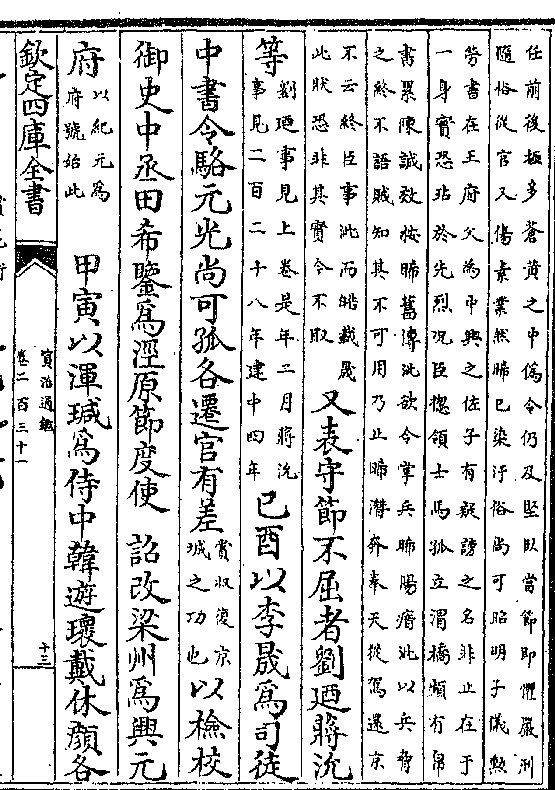 任前後極多蒼黃之中偽令仍及堅臥當節即懼嚴刑
隨俗從官又傷素業然晞已染汙俗尚可昭明子儀勲
勞書在王府父為中興之佐子有疑謗之名非止在于
一身實恐玷於先烈况臣揔領士馬孤立渭橋頻有帛
書累陳誠效按晞舊傳泚欲令掌兵晞陽瘖泚以兵脅
之終不語賊知其不可用乃止晞潛奔奉天從駕還京
不云終臣事泚而皓載晟
此狀恐非其實今不取
又表守節不屈者劉廼蔣沇
等
劉廼事見上卷是年二月蔣沇
事見二百二十八年建中四年
已酉以李晟為司徒
中書令駱元光尚可孤各遷官有差
賞收復京
城之功也
以檢校
御史中丞田希鑒爲涇原節度使 詔改梁州爲興元
府
以紀元為
府號始此
甲寅以渾瑊爲侍中韓遊瓌戴休顔各
欽定四庫全書
資治通鑑
卷二百三十一
十三